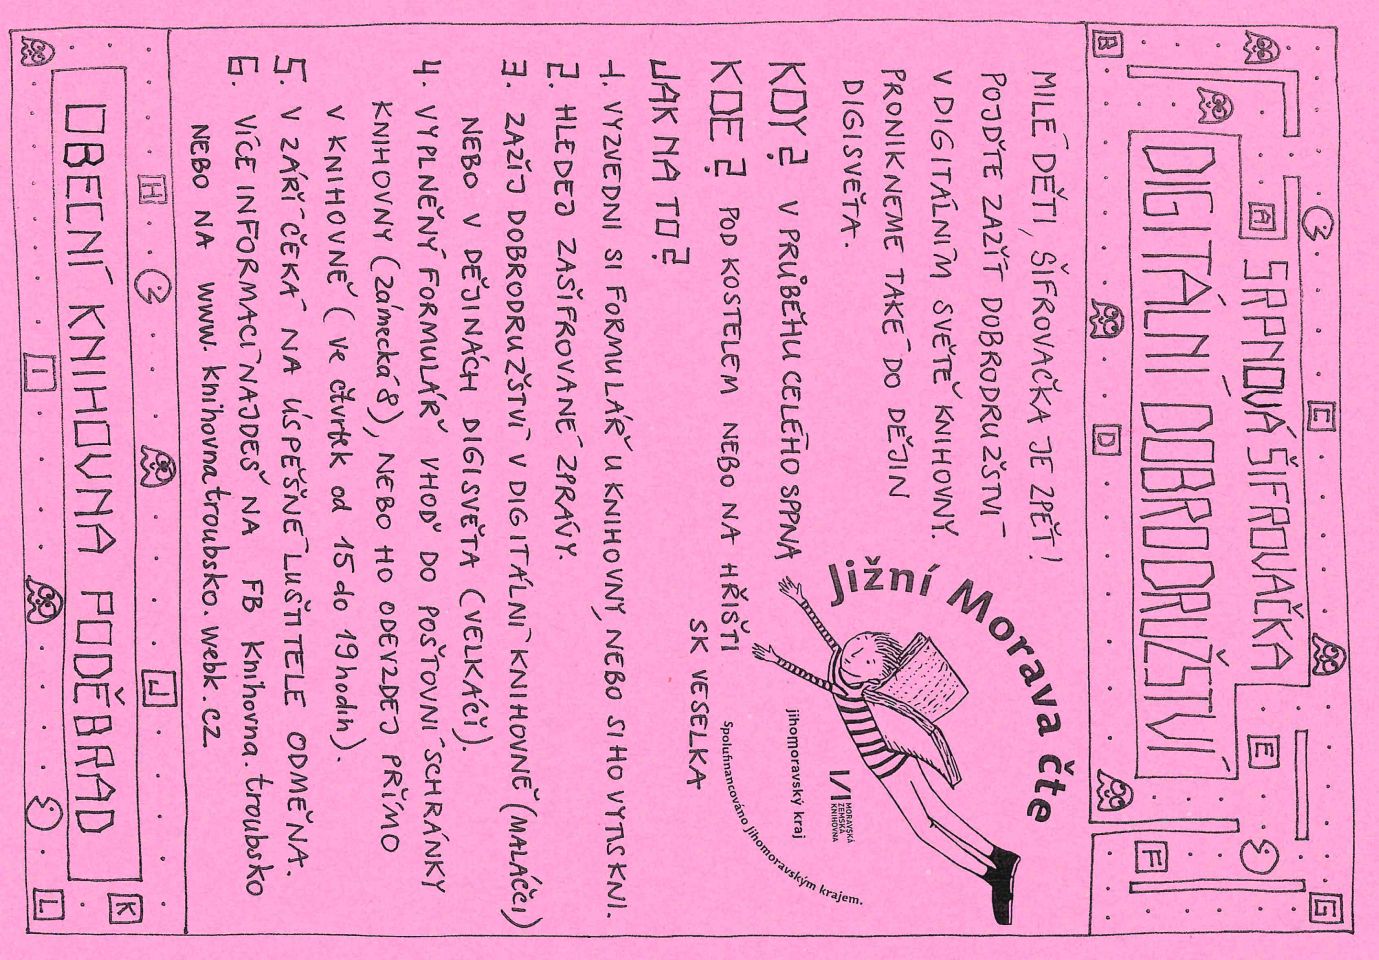 SRPNOVÁ ŠIFROVAČKA
DIGITÁLNÍ DOBRODRUŽSTVÍ
A
B
C
D
E
F
G
MILÉ DĚTI, ŠIFROVAČKA JE ZPĚT!
POJĎTE ZAŽÍT DOBRODRUŽSTVÍ
V DIGITÁLNÍM SVĚTĚ KNIHOVNY.
PRONIKNEME TAKÉ DO DĚJIN
DIGISVĚTA.
Jižní Morava čte
MORAVSKÁ
ZEMSKÁ
KNIHOVNA
jihomoravský kraj
Spolufinancováno Jihomoravským krajem.
KDY? V PRŮBĚHU CELÉHO SRPNA
KDE? POD KOSTELEM NEBO NA HŘIŠTI
SK VESELKA
JAK NA TO?
1. VYZVEDNI SI FORMULÁŘ U KNIHOVNY, NEBO SI HO VYTISKNI.
2. HLEDEJ ZAŠIFROVANÉ ZPRÁVY.
3. ZAŽIJ DOBRODRUŽSTVÍ V DIGITÁLNÍ KNIHOVNĚ (MALÁČCI)
NEBO V DĚJINÁCH DIGISVĚTA (VELKÁČI).
4. VYPLNĚNÝ FORMULÁŘ VHOĎ DO POŠTOVNÍ SCHRÁNKY
KNIHOVNY (Zámecká 8), NEBO HO ODEVZDEJ PŘÍMO
V KNIHOVNĚ (ve čtvrtek od 15 do 19 hodin).
5. V ZÁŘÍ ČEKÁ NA ÚSPĚŠNÉ LUŠTITELE ODMĚNA.
6. VÍCE INFORMACÍ NAJDEŠ NA FB Knihovna.troubsko
NEBO NA www.knihovnatroubsko.webk.cz
H
I
J
K
L
OBECNÍ KNIHOVNA PODĚBRAD